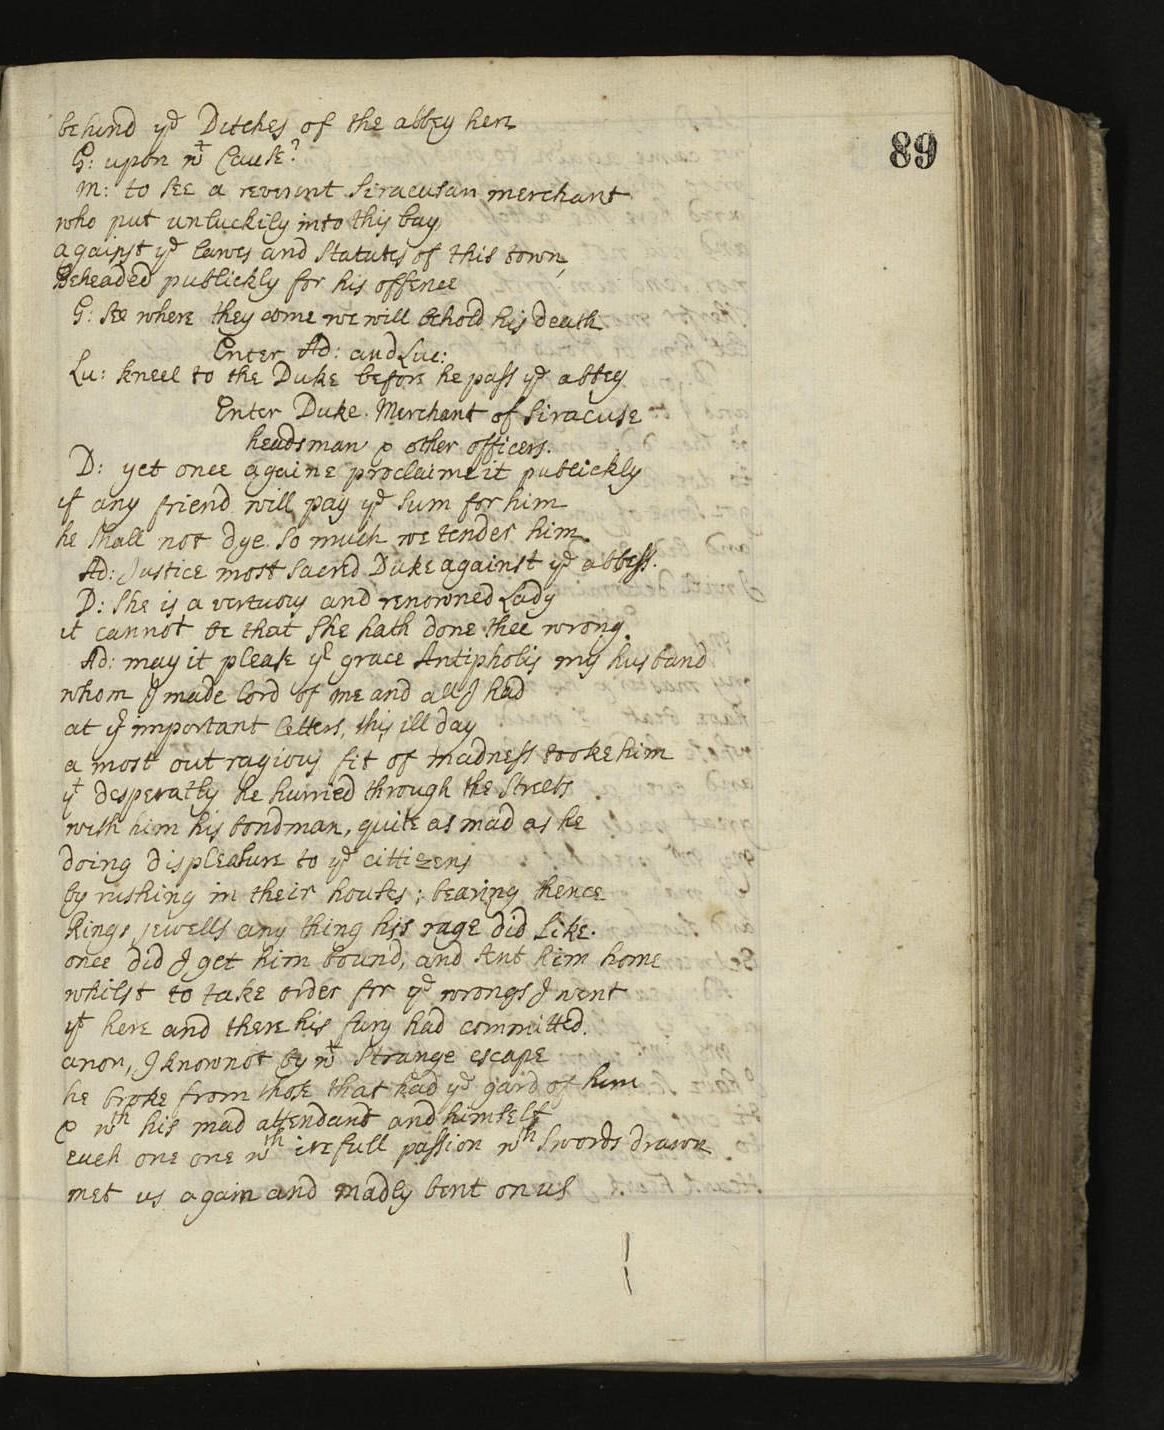 89
behind ye Ditches of the abbey here
G: upon wt Cause?
M: to see a reverent Siracusan merchant
who put unluckily into this bay
against ye lawes and statutes of this town,
Beheaded publickly for his offence
G: see where they come we will behold his death
Enter Ad: and Luc:
Lu: kneel to the Duke before he pass ye abbey
Enter Duke. Merchant of Siracuse
headsman & other officers.
D: yet once againe proclaime it publickly
if any friend will pay ye sum for him
he shall not dye. so much we tender him.
Ad: Justice most sacred Duke against ye abbess.
D: she is a vertuous and renowned Lady
it cannot be that she hath done thee wrong.
Ad: may it please yr grace Antipholis my husband
whom I made lord of me and all I had
at yr important letters, this ill day
a most outragious fit of madness tooke him
yt desperatly he hurried through the streets
with him his bondman, quite as mad as he
doing displeasure to ye cittizens
by rushing in their houses; bearing hence
Rings, jewells any thing his rage did like.
once did I get him bound, and sent him home
whilst to take order for ye wrongs I went
yt here and there his fury had committed.
anon, I know not by wt strange escape
he broke from those that had ye gard of him
& wth his mad attendant and himself
each one one wth irefull passion wth swords drawn
met us again and madly bent on us